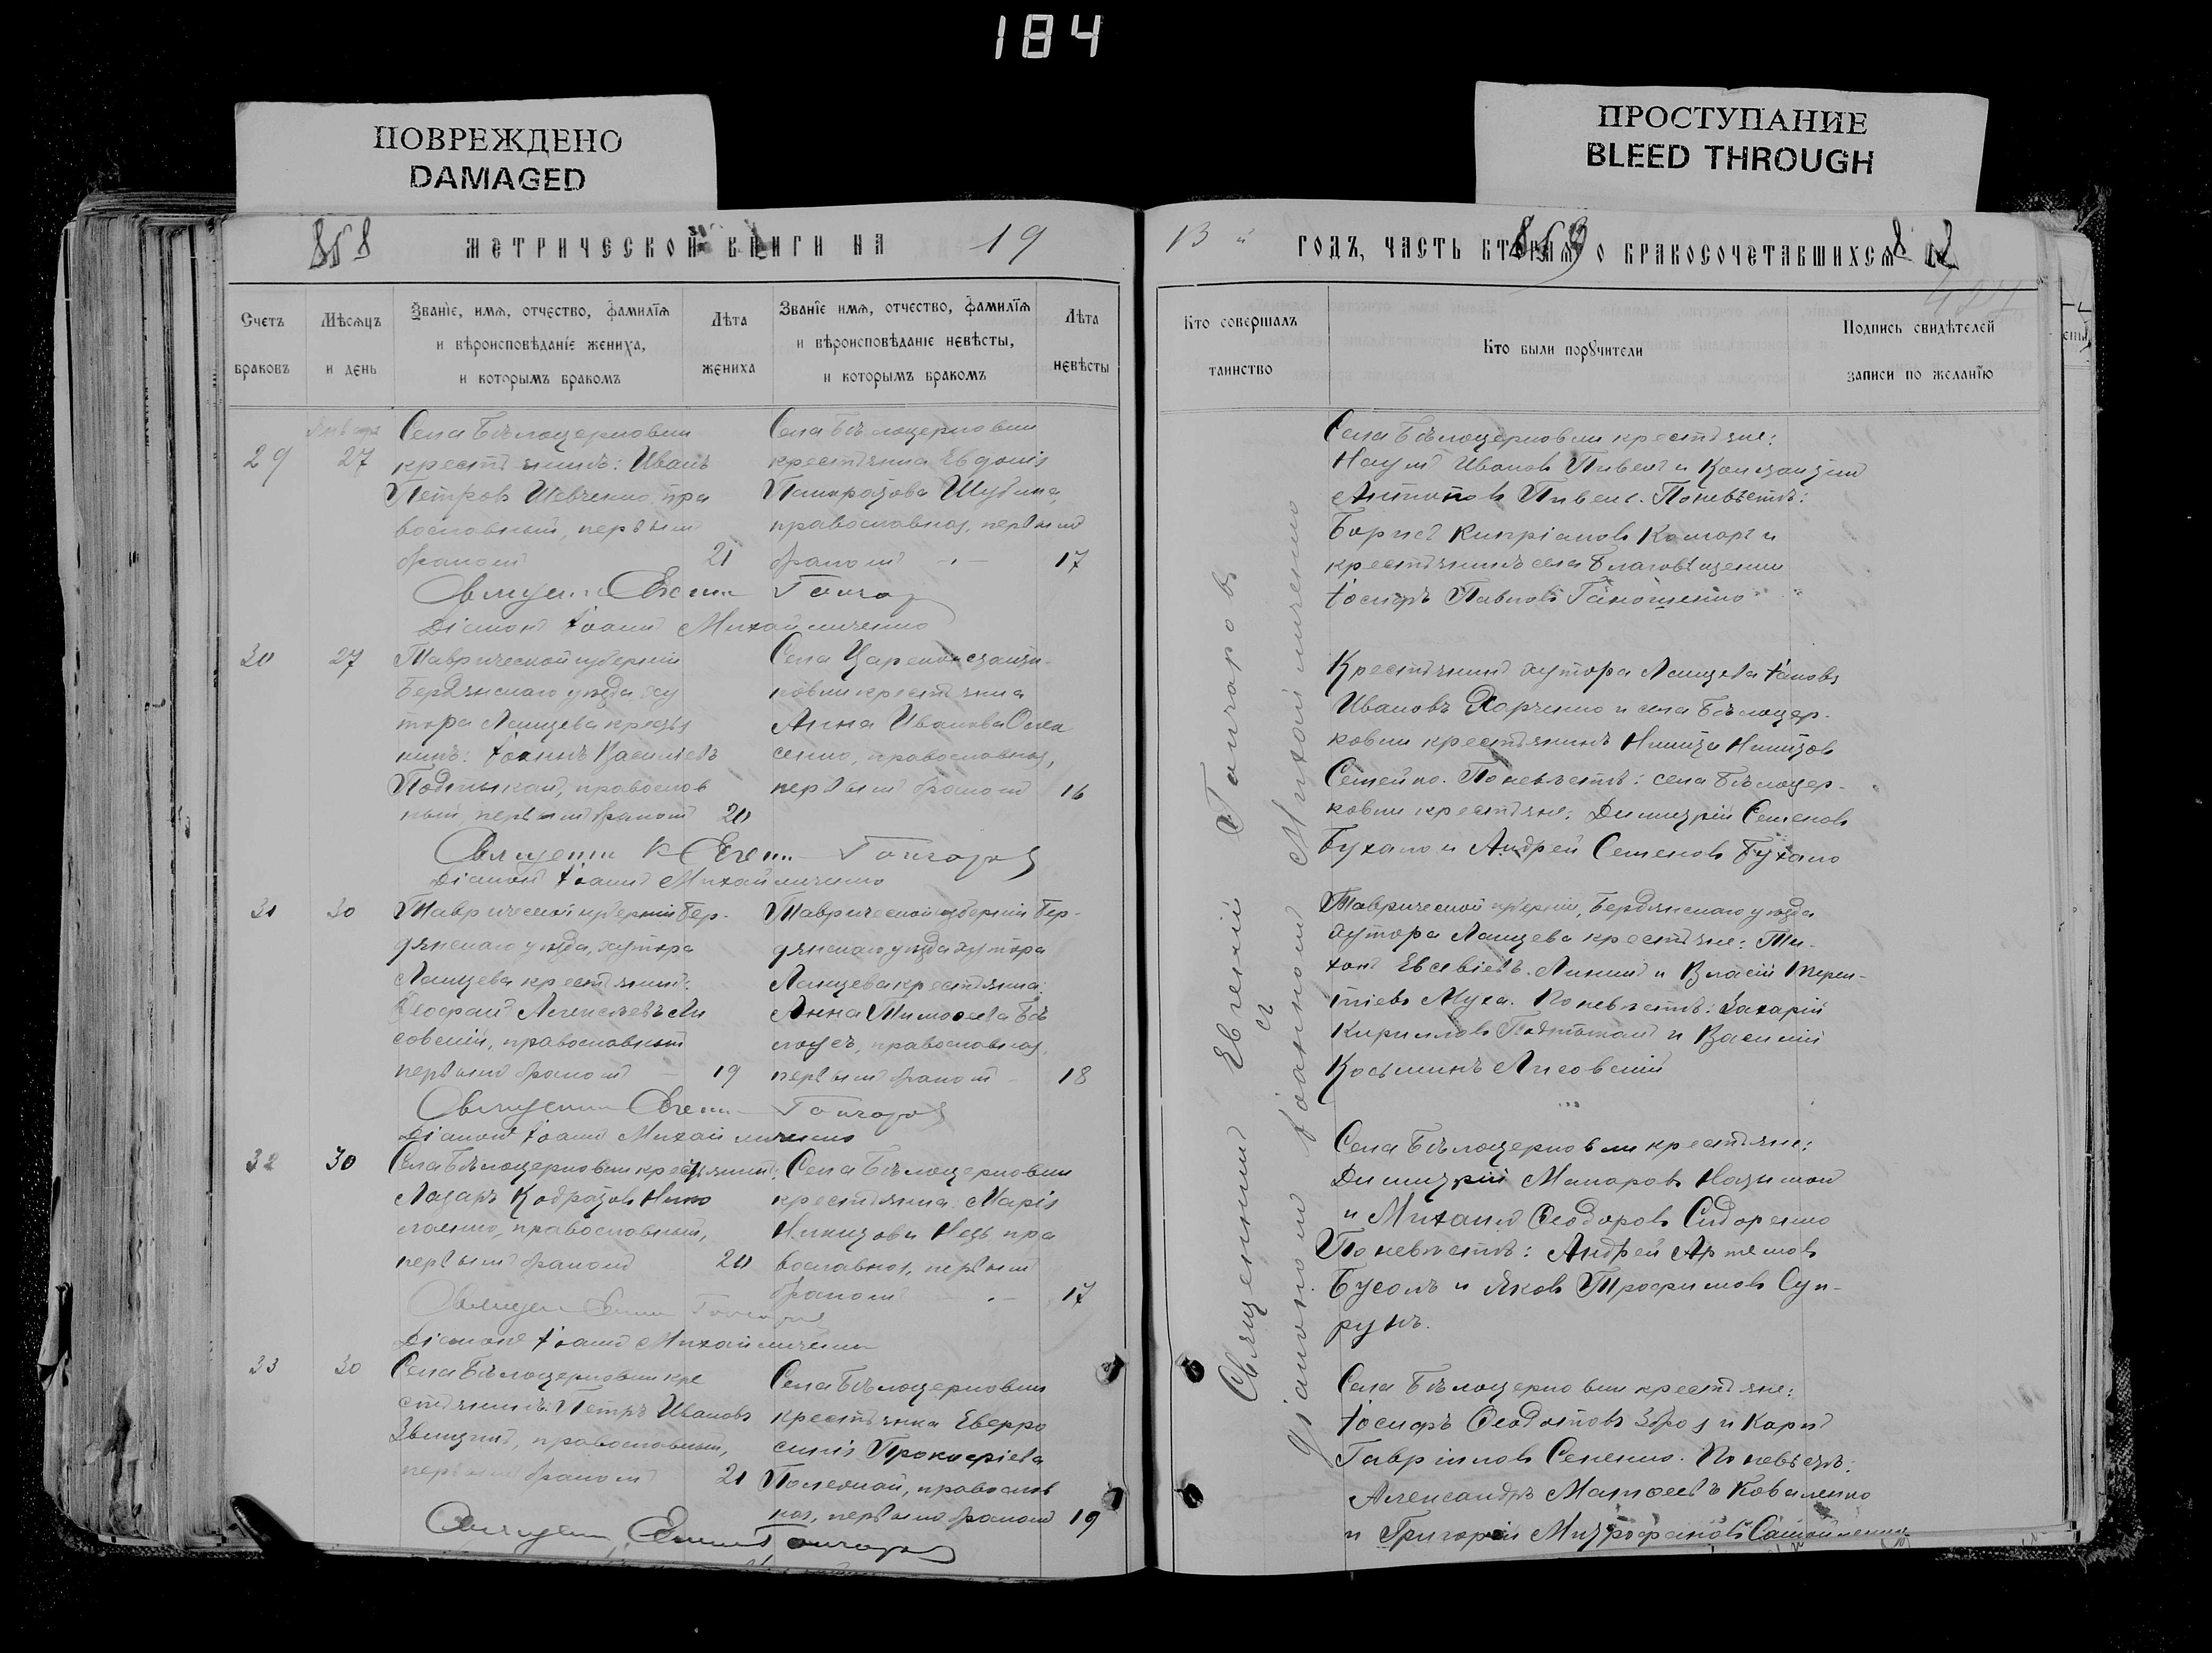 184
ПОВРЕЖДЕНО
DAMAGED
ПРОСТУПАНИЕ
BLEED THROUGH
858
МЕТРИЧЕСКОЙ КНИГИ НА 19
Счетъ браковъ
Мѣсяцъ и день
Званіе, имя, отчество, фамилія
и вѣроисповѣданіе жениха,
и которымъ бракомъ
Лѣта жениха
Званіе имя, отчество, фамилія
и вѣроисповѣданіе невѣсты,
и которымъ бракомъ
Лѣта невѣсты
29
Января
27
Села Бѣлоцерковки
крестьянинъ: Иванъ
Петровъ Шевченко, пра
вославный, первымъ
бракомъ 21
Села Бѣлоцерковки
крестьянка Евдокія
Панкратова
православная, первымъ
бракомъ 17
Священникъ Евгеній Гончаровъ
Діаконъ Іоаннъ Михайличенко
30
27
Таврической губерніи
Бердянскаго уѣзда, ху
тора Ланцева крестья
нинъ: Іоаннъ Васильевъ
православ
ный, первымъ бракомъ 20
Села Цареконстанти-
новки крестьянка
Анна Иванова
православная,
первымъ бракомъ 16
Священникъ Евгеній Гончаровъ
Діаконъ Іоаннъ Михайличенко
31
30
Таврической губерніи Бер-
дянскаго уѣзда, хутора
Ланцева крестьянинъ:
Феофанъ Алексѣевъ Ли
совскій, православный
первымъ бракомъ 19
Таврической губерніи Бер-
дянскаго уѣзда хутора
Ланцева крестьянка:
Анна Тимофеева Бѣ
лоусъ, православная,
первымъ бракомъ 18
Священникъ Евгеній Гончаровъ
Діаконъ Іоаннъ Михайличенко
32
30
Села Бѣлоцерковки крестьянинъ:
Лазарь Кодратовъ Нико
лаенко, православный,
первымъ бракомъ 20
Села Бѣлоцерковки
крестьянка: Марія
Никитова пра
вославная, первымъ
бракомъ 17
Священникъ Евгеній Гончаровъ
Діаконъ Іоаннъ Михайличенко
33
30
Села Бѣлоцерковки кре
стьянинъ: Петръ Ивановъ
православный,
первымъ бракомъ 21
Села Бѣлоцерковки
крестьянка Евфро
синія Прокофіева
православ
ная, первымъ бракомъ 19
Священникъ Евгеній Гончаровъ
13й ГОДЪ, ЧАСТЬ ВТОРАЯ, О БРАКОСОЧЕТАВШИХСЯ
859
Кто совершалъ таинство
Кто были поручители
Подпись свидѣтелей
записи по желанію
Священникъ Евгеній Гончаровъ
съ
діакономъ Іоанномъ Михайличенко
Села Бѣлоцерковки крестьяне:
Наумъ Ивановъ Пивень и Константинъ
Антоновъ Пивень. По невѣстѣ:
Борисъ Кипріановъ Комаръ и
крестьянинъ села Благовѣщенки
Іосифъ Павловъ
Крестьянинъ хутора Ланцева Іаковъ
Ивановъ Харченко и села Бѣлоцер-
ковки крестьянинъ Никита Никитовъ
Семейко. По невѣстѣ: села Бѣлоцер-
ковки крестьяне: Димитрій Семеновъ
Бухало и Андрей Семеновъ Бухало
Таврической губерніи, Бердянскаго уѣзда
хутора Ланцева крестьяне: Ти-
хонъ Евсевіевъ и Власій Терен-
тіевъ Муха. По невѣстѣ: Захарій
Кирилловъ и Василій
Косьминъ Лисовскій
Села Бѣлоцерковки крестьяне:
Димитрій Макаровъ
и Михаилъ Феодоровъ Сидоренко
По невѣстѣ: Андрей Артемовъ
и Яковъ Трофимовъ Суп-
рунъ.
Села Бѣлоцерковки крестьяне:
Іосифъ Феодотовъ и Карпъ
Гавріиловъ Сененко. По невѣстѣ:
Александръ Матфеевъ Коваленко
и Григорій Митрофановъ Самойленко